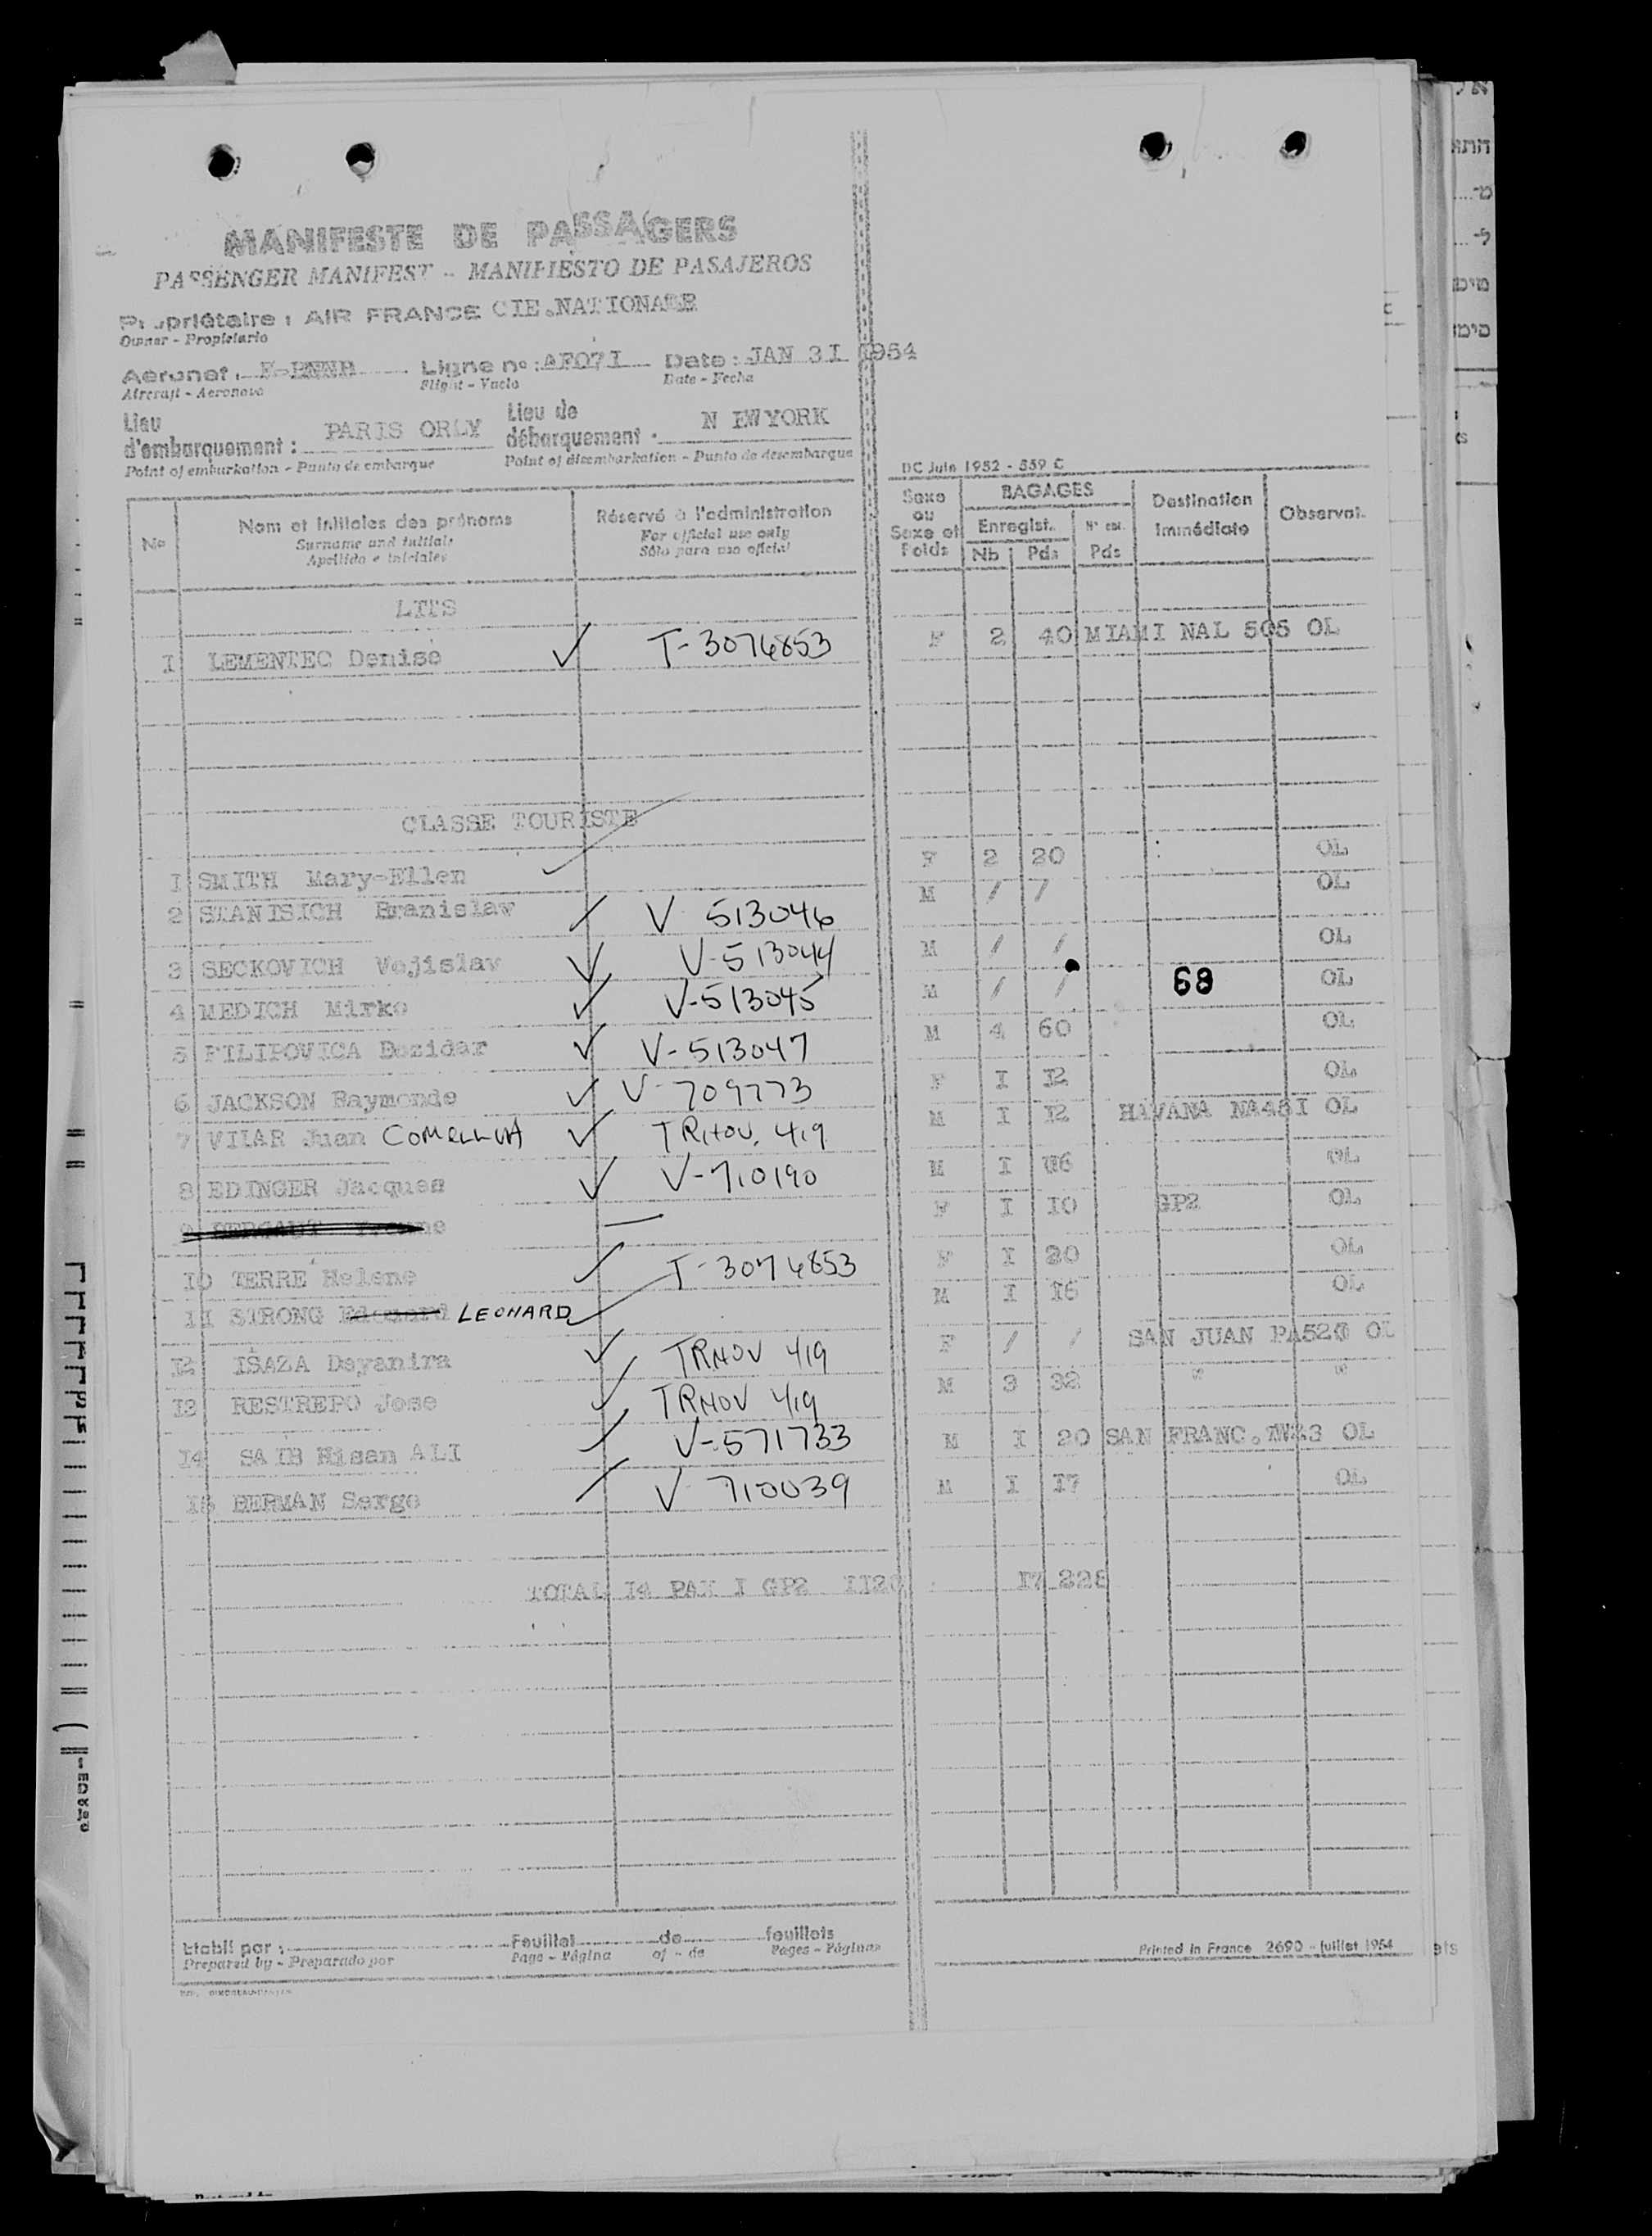 MANIFESTE DE PASSAGERS
PASSENGER MANIFEST - MANIFIESTO DE PASAJEROS
Propriétaire : AIR FRANCE CIE.NATIONALE
Owner - Propietario
Aéronef : Ligne no : AF071 Date : JAN 3I 1954
Aircraft - Aeronave Flight - Vuelo Date - Fecha
Lieu d'embarquement : PARIS ORLY Lieu de débarquement : N EWYORK
Point of embarkation - Punto de embarque Point of disembarkation - Punto de desembarque
DC Juin 1952 - 559 C
No Nom et initiales des prénoms Réservé à l'administration Sexe ou Sexe et Poids BAGAGES Destination immédiate Observat.
Surname and initials For official use only Enregist. N° cal.
Apellido e iniciales Sólo para uso oficial Nb Pds Pds
LITS
I LEMENTEC Denise ✓ T-3074853 F 2 40 MIAMI NAL 505 OL
CLASSE TOURISTE
I SMITH Mary-Ellen ✓ F 2 20 OL
2 STANISICH Branislav ✓ V 513046 M / / OL
3 SECKOVICH Vojislav ✓ V-513044 M / / OL
4 MEDICH Mirko ✓ V-513045 M / / 68 OL
5 FILIPOVICA Bozidar ✓ V-513047 M 4 60 OL
6 JACKSON Raymonde ✓ V-709773 F I I2 OL
7 VILAR Juan COMELLUA ✓ TRHOV. 419 M I I2 HAVANA NA48I OL
8 EDINGER Jacques ✓ V-710190 M I 06 OL
9 F I I0 GP2 OL
I0 TERRE Helene ✓ T-3074853 F I 20 OL
II STRONG Edouard LEONARD ✓ M I I5 OL
I2 ISAZA Dayanira ✓ TRHOV 419 F / / SAN JUAN OL
I3 RESTREPO Jose ✓ TRHOV 419 M 3 32 " "
I4 SAIB Hisan ALI ✓ V-571733 M I 20 SAN FRANC. OL
I5 BERMAN Serge ✓ V 710039 M I I7 OL
TOTAL I4 PAX I GP2 I7 228
Etabli par : Feuillet de feuillets
Prepared by - Preparado por Page - Página of - de Pages - Páginas
Printed in France 2690 - Juillet 1954